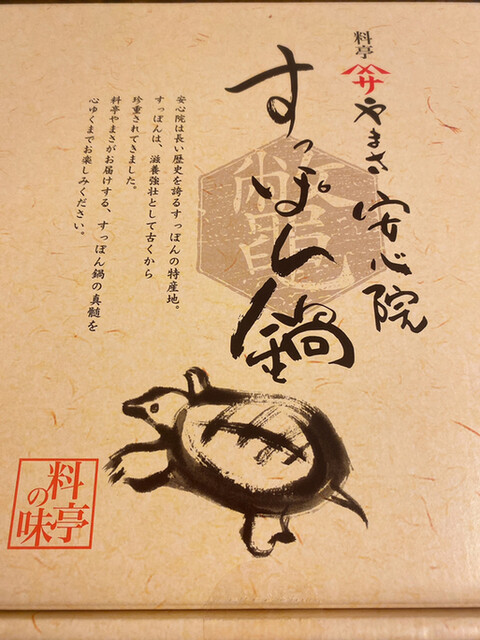 料亭
サ
やまさ
安心院
すっぽん鍋
鼈
安心院は長い歴史を誇るすっぽんの特産地。
すっぽんは、滋養強壮として古くから
珍重されてきました。
料亭やまさがお届けする、すっぽん鍋の真髄を
心ゆくまでお楽しみください。
料亭
の味